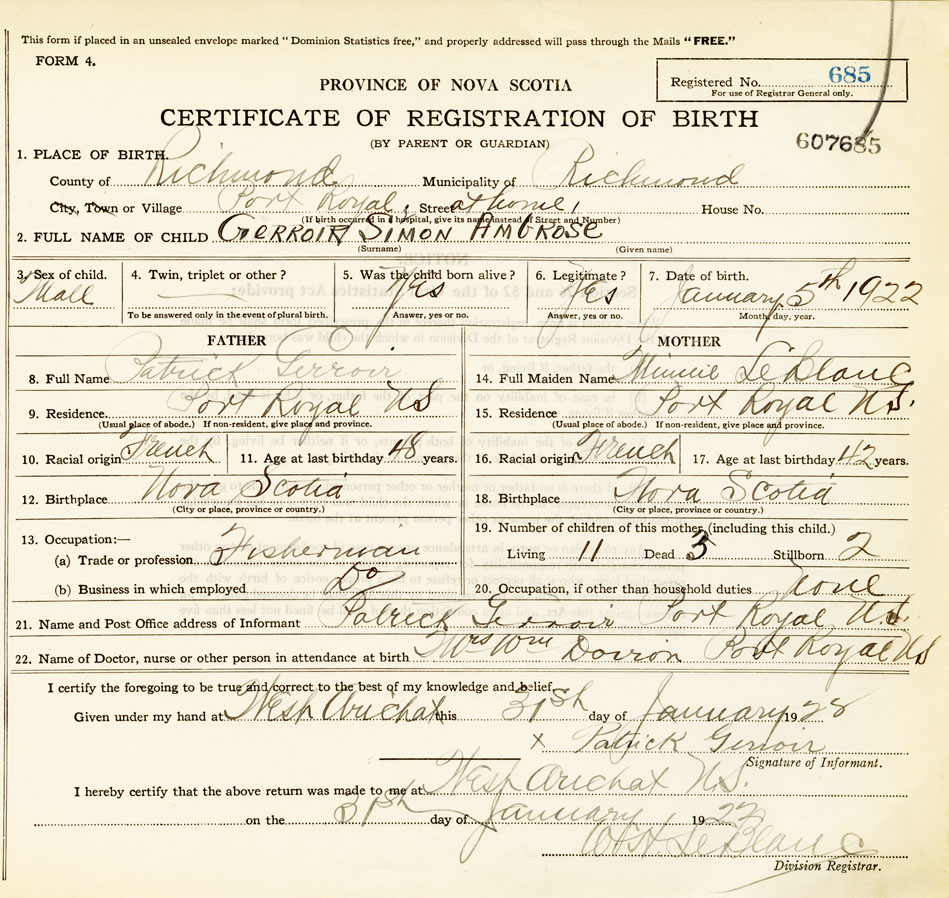 This form if placed in an unsealed envelope marked "Dominion Statistics free," and properly addressed will pass through the Mails "FREE."
FORM 4.
Registered No. 685
For use of Registrar General only.
PROVINCE OF NOVA SCOTIA
CERTIFICATE OF REGISTRATION OF BIRTH
(BY PARENT OR GUARDIAN)
607685
1. PLACE OF BIRTH.
County of Richmond Municipality of Richmond
City, Town or Village Port Royal, Street at home, House No.
(If birth occurred in a hospital, give its name instead of Street and Number)
2. FULL NAME OF CHILD GERROIR SIMON AMBROSE
(Surname) (Given name)
3. Sex of child. 4. Twin, triplet or other? 5. Was the child born alive? 6. Legitimate? 7. Date of birth.
Mall Yes Yes January 5th 1922
To be answered only in the event of plural birth. Answer, yes or no. Answer, yes or no. Month, day, year.
FATHER
8. Full Name Patrick Gerroir
9. Residence. Port Royal NS
(Usual place of abode.) If non-resident, give place and province.
10. Racial origin French 11. Age at last birthday 48 years.
12. Birthplace Nova Scotia
(City or place, province or country.)
13. Occupation:—
(a) Trade or profession Fisherman
(b) Business in which employed Do
MOTHER
14. Full Maiden Name Minnie LeBlanc
15. Residence Port Royal N.S.
(Usual place of abode.) If non-resident, give place and province.
16. Racial origin French 17. Age at last birthday 42 years.
18. Birthplace Nova Scotia
(City or place, province or country.)
19. Number of children of this mother (including this child.)
Living 11 Dead 3 Stillborn 2
20. Occupation, if other than household duties None
21. Name and Post Office address of Informant Patrick Gerroir Port Royal N.S.
22. Name of Doctor, nurse or other person in attendance at birth Mrs Wm Doiron Port Royal NS
I certify the foregoing to be true and correct to the best of my knowledge and belief.
Given under my hand at West Arichat this 31st day of January 1928
x Patrick Gerroir
Signature of Informant.
I hereby certify that the above return was made to me at West Arichat N.S.
on the 31st day of January 19
LeBlanc
Division Registrar.